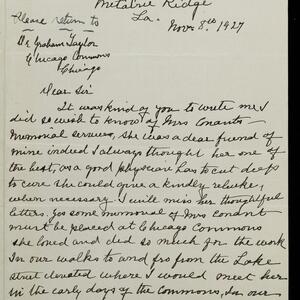 Metairie Ridge
La.
Nov. 8th 1927
Please return to
Dr Graham Taylor
Chicago Commons
Chicago
Dear Sir
It was kind of you to write me, I
did so wish to know of Mrs Conants
Memorial services, she was a dear friend of
mine indeed I always thought her one of
the best, as a good physician has to cut deeps
to cure she could give a kindly rebuke,
when necessary I will miss her thoughtful
letters. Yes some memorial of Mrs Conant
must be placed at Chicago Commons
she loved and did so much for the work
In our walks to and fro from the Lake
street elevated where I would meet her
in the early days of the Commons, in our